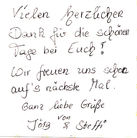 Vielen herzlicher
Dank für die schönen
Tage bei Euch!
Wir freuen uns schon
auf's nächste Mal.
Ganz liebe Grüße
von
Jörg & Steffi